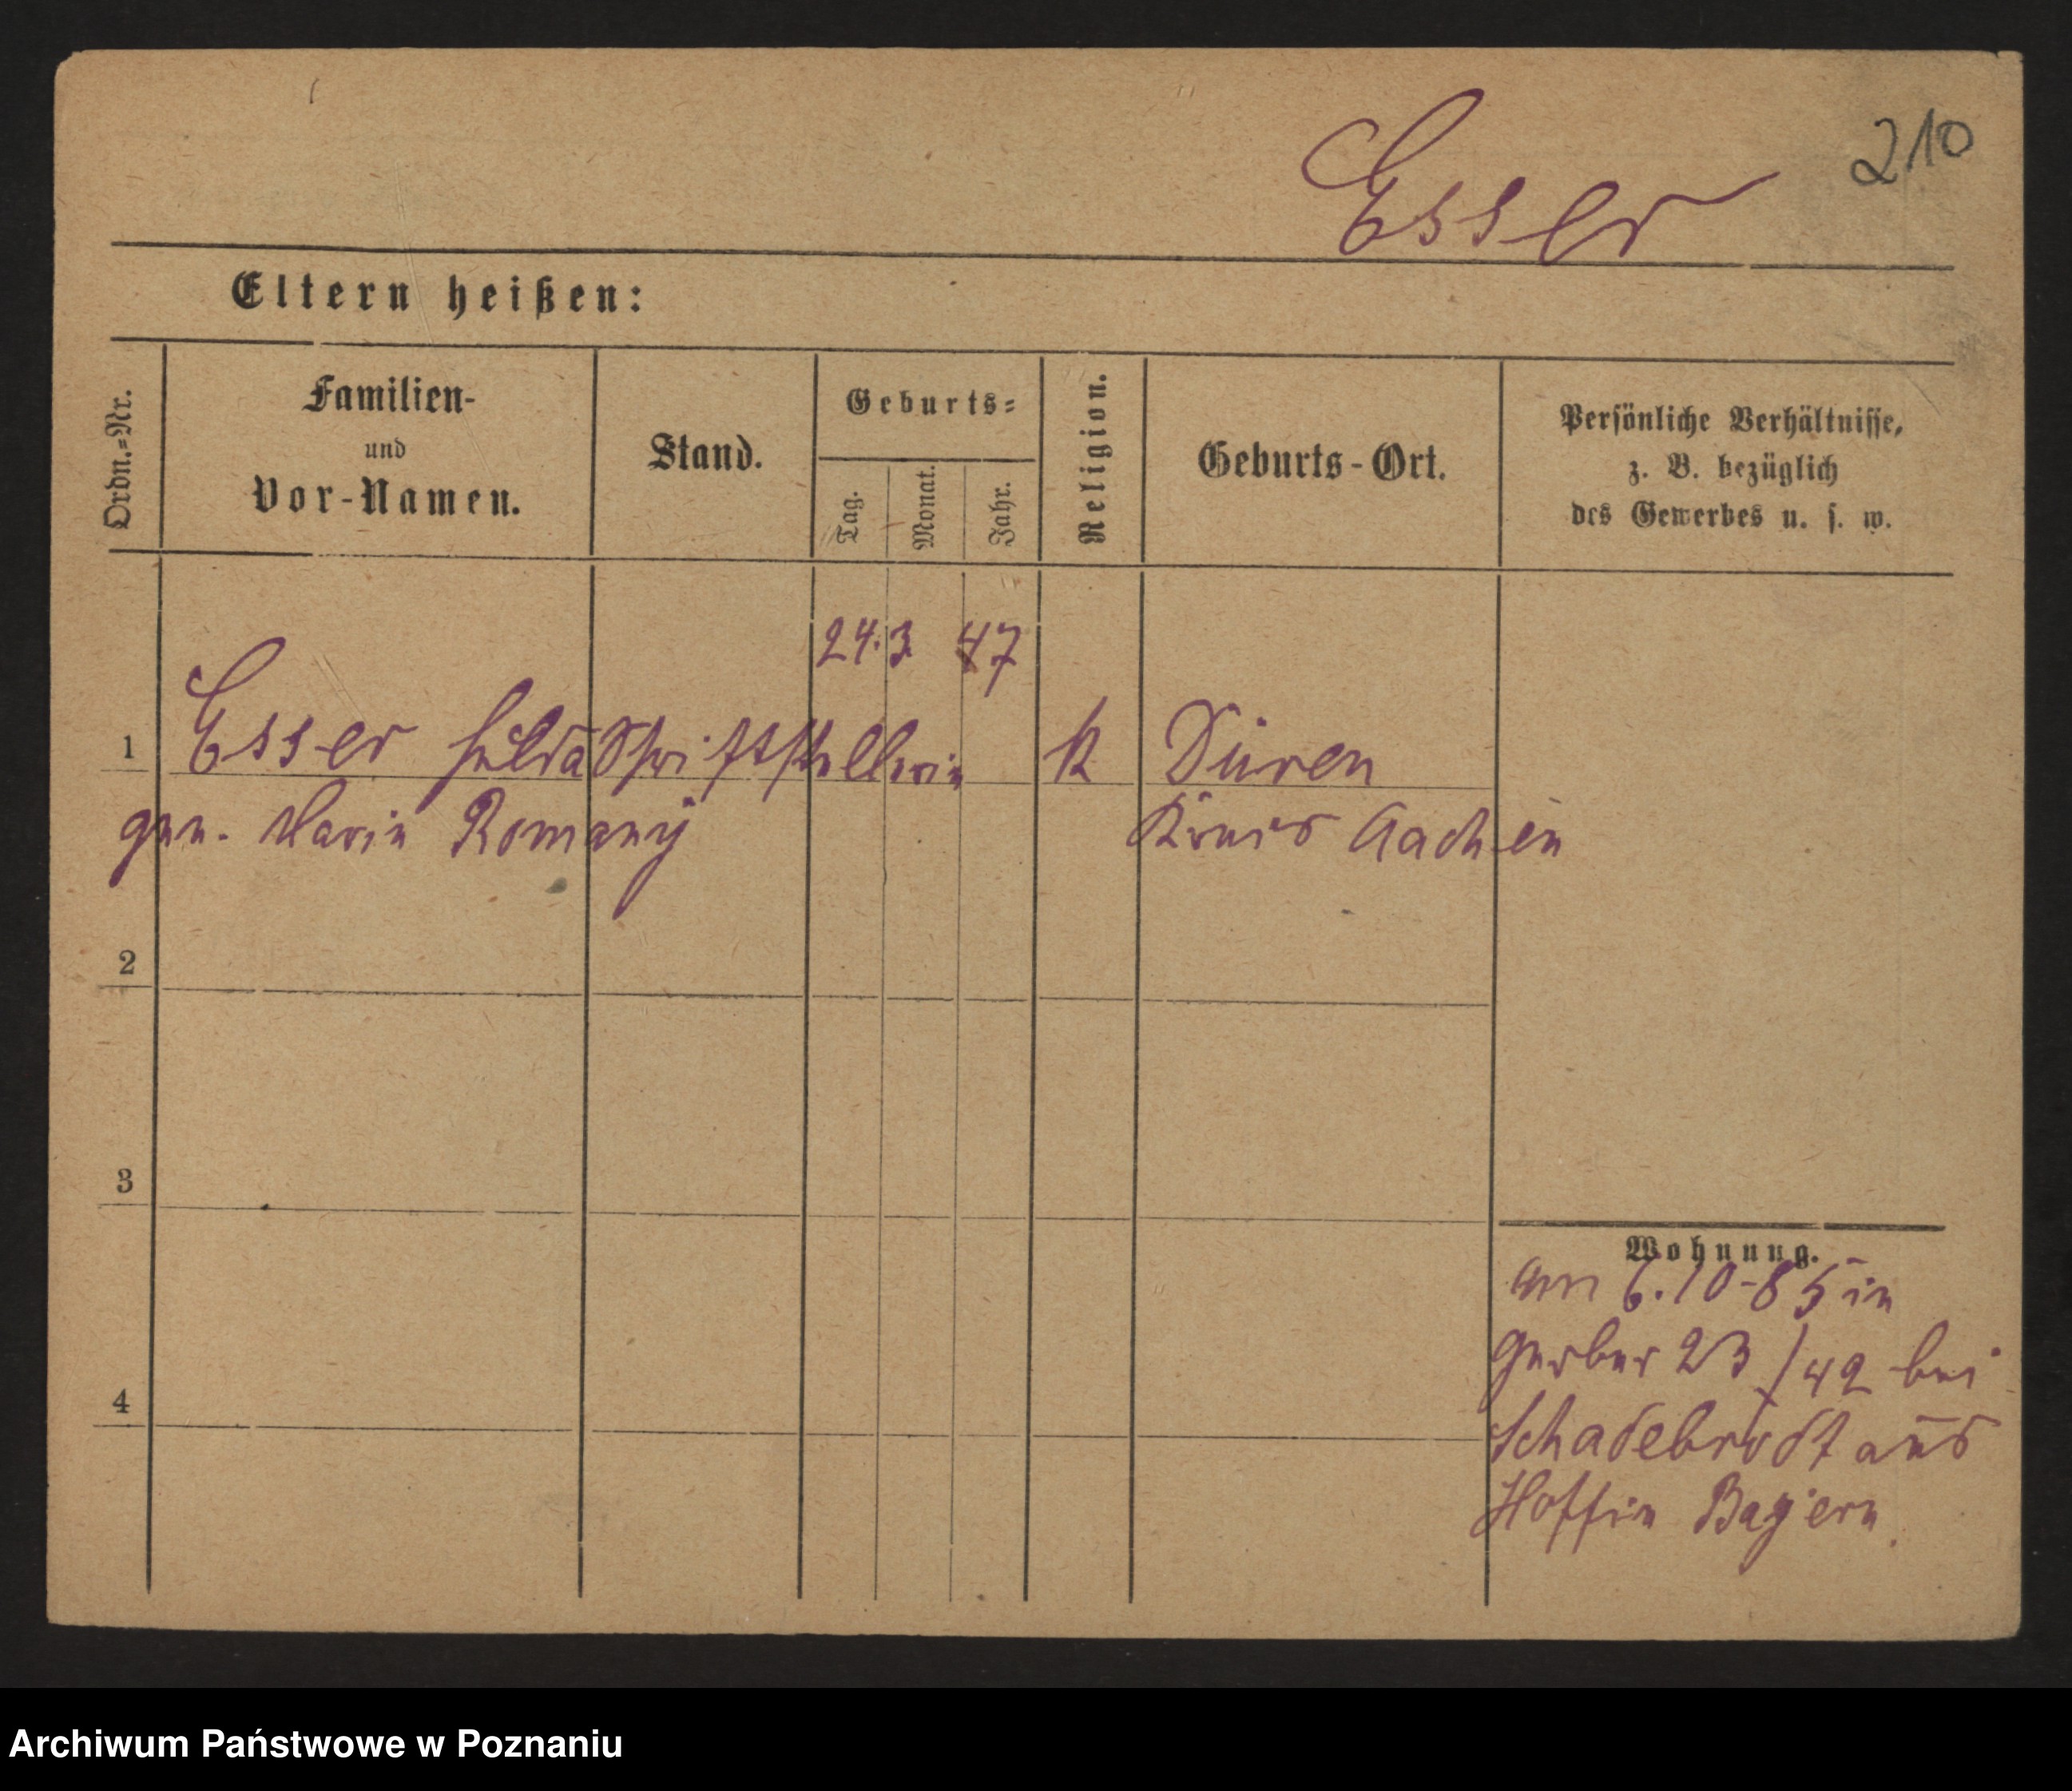 210
Esser
Eltern heißen:
Ordn.=Nr.
Familien-
und
Vor-Namen.
Stand.
Geburts=
Tag.
Monat.
Jahr.
Religion.
Geburts-Ort.
Persönliche Verhältnisse,
z. B. bezüglich
des Gewerbes u. s. w.
24. 3. 47
1 Esser Hulda Schriftstellerin K Düren
gen. Marie Romany Kreis Aachen
2
3
4
Wohnung.
am 6. 10-85 in
Gerber 23/42 bei
Schadebrodt aus
Hoffin Bayern.
Archiwum Państwowe w Poznaniu